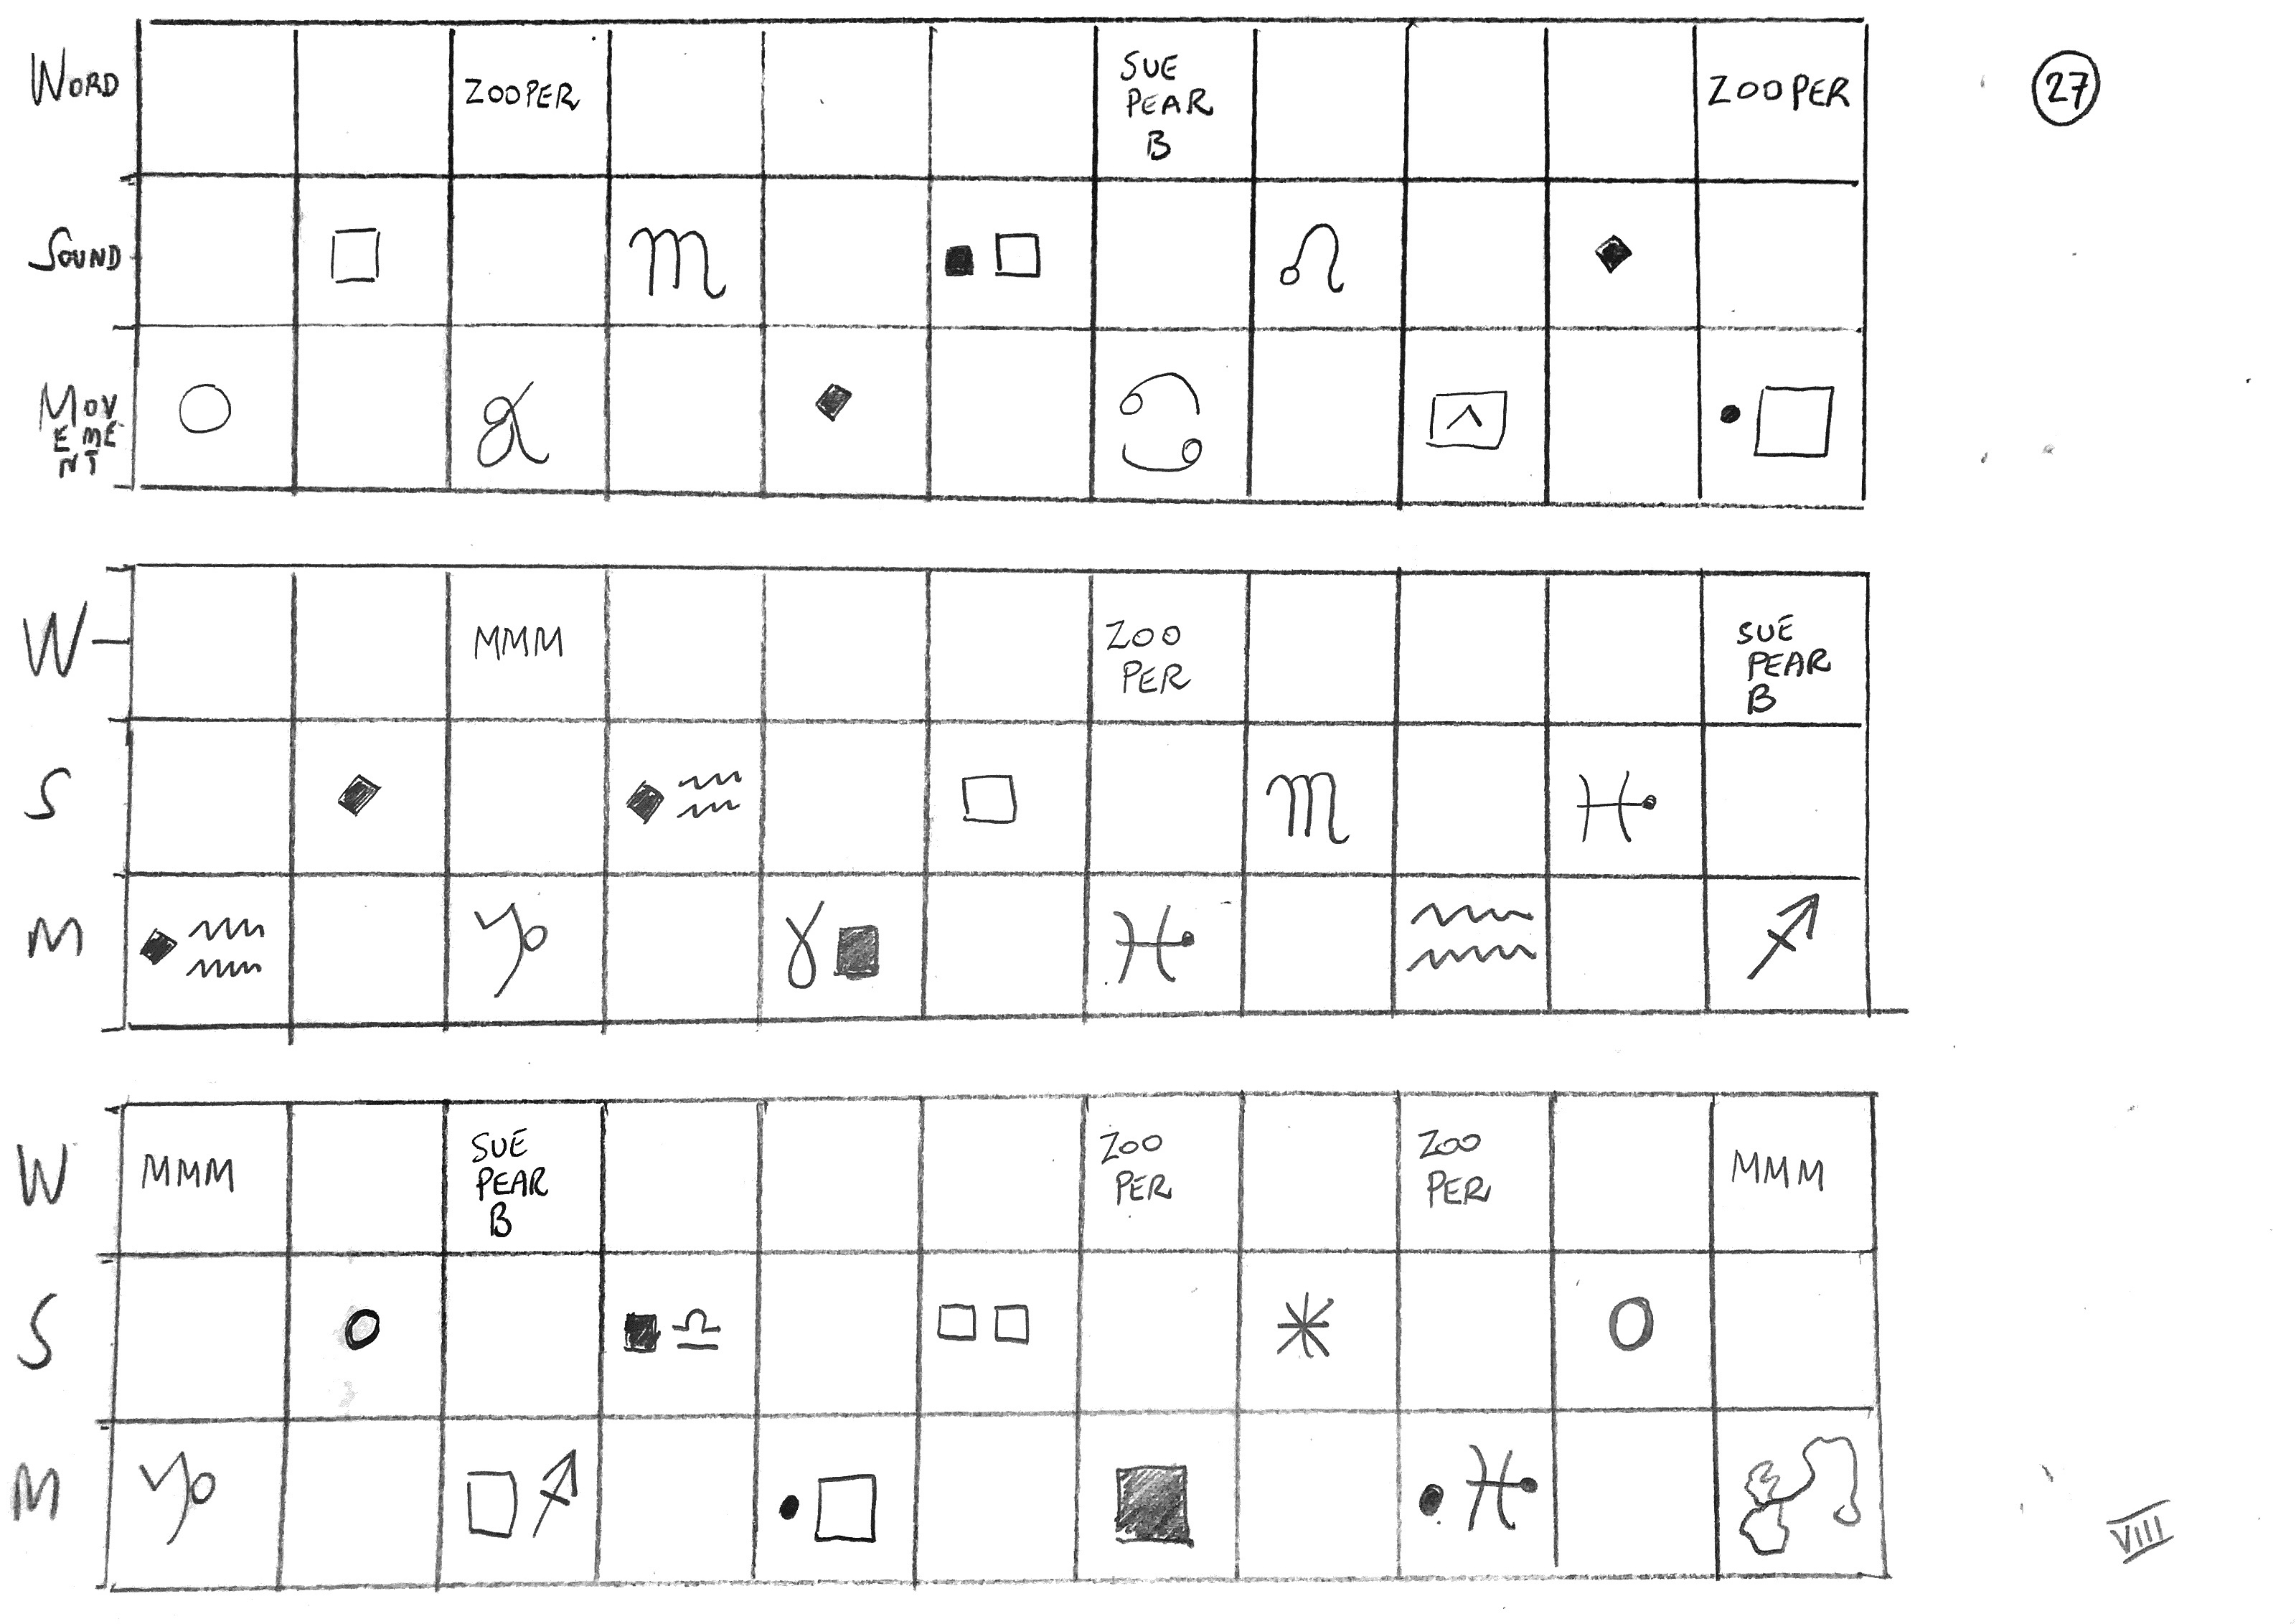 WORD
ZOOPER
SUE
PEAR
B
ZOOPER
27
SOUND
MOV
EME
NT
W
MMM
ZOO
PER
SUE
PEAR
B
S
M
W
MMM
SUE
PEAR
B
ZOO
PER
ZOO
PER
MMM
S
M
VIII